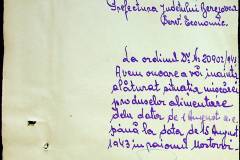 Prefectura Județului Gorjiova
Serv. Economic.
La ordinul Dv. N. 20902/943
Avem onoare a vă înainta
alăturat situația mișcărei
produselor alimentare
dela datar de 1 August a.c.
până la data de 15 August
1943 în raionul Mostovoi.